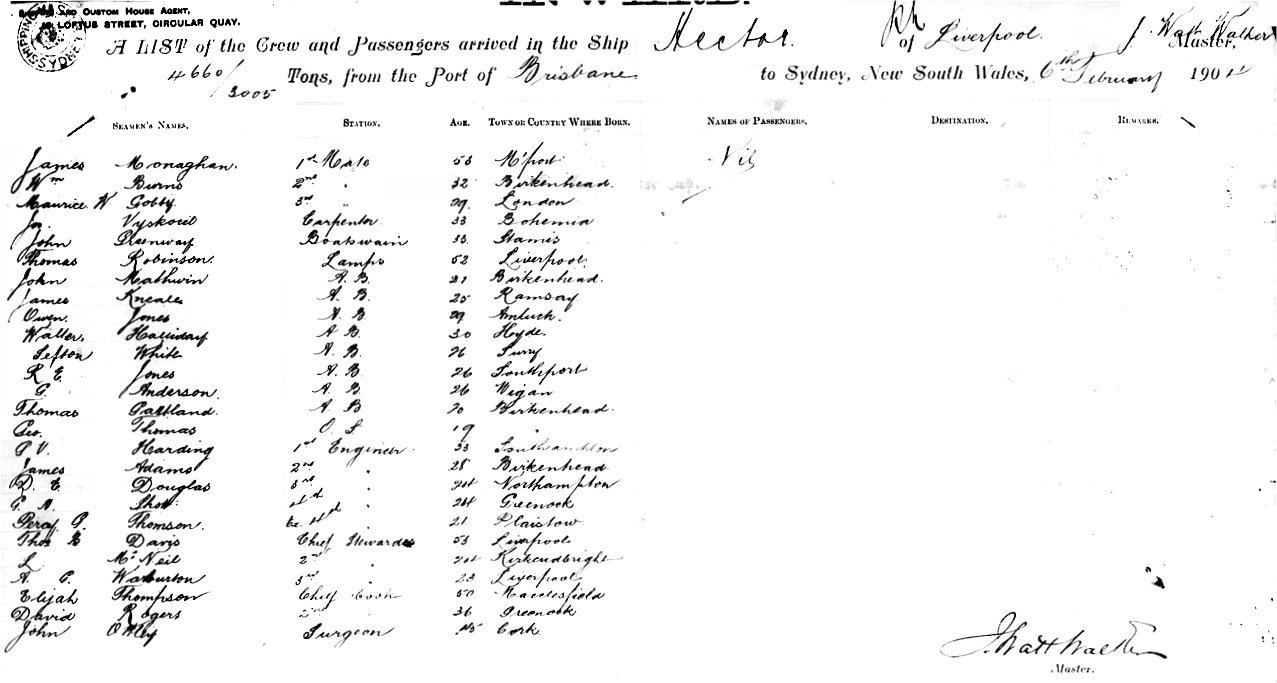 INWARD.
Shipping and Custom House Agent,
Loftus Street, Circular Quay.
A LIST of the Crew and Passengers arrived in the Ship Hector. of Liverpool. J. Watt Walker Master,
4660/3005 Tons, from the Port of Brisbane to Sydney, New South Wales, 6th February 1904
Seamen's Names. Station. Age. Town or Country Where Born. Names of Passengers. Destination. Remarks.
James Monaghan. 1st Mate 53 M'port Nil
Wm Burns 2nd " 32 Birkenhead.
Maurice W Gobby. 3rd " 29 London
Jos Vyskocil Carpenter 33 Bohemia
John Greenway Boatswain 33.
Thomas Robinson. Lamps 52 Liverpool
John Mathwin A. B. 21 Birkenhead.
James Kneale A. B. 25 Ramsay
Owen Jones A. B. 29 Amluch.
Walter. Halliday A B. 30 Hyde.
Sefton White A. B. 26 Surry
R E. Jones A. B. 26 Southport
G. Anderson. A. B. 26 Wigan
Thomas Partland. A. B 20 Birkenhead.
Geo. Thomas O. S. 19 "
P V. Harding 1st Engineer 33 Southampton
James Adams 2nd " 28 Birkenhead
D. E. Douglas 3rd " 24 Northampton
G. A. 4th " 24 Greenock
Percy G. Thomson. Ex. 4th " 21 Plaistow
Thos E Davis Chief Steward 53 Liverpool
L McNeil 2nd " 24 Kirkcudbright
A. P. Warburton 3rd " 23 Liverpool
Elijah Thompson Chief Cook 50 Macclesfield
David Rogers 2nd " 36 Greenock
John Surgeon Cork
J. Watt Walker
Master.